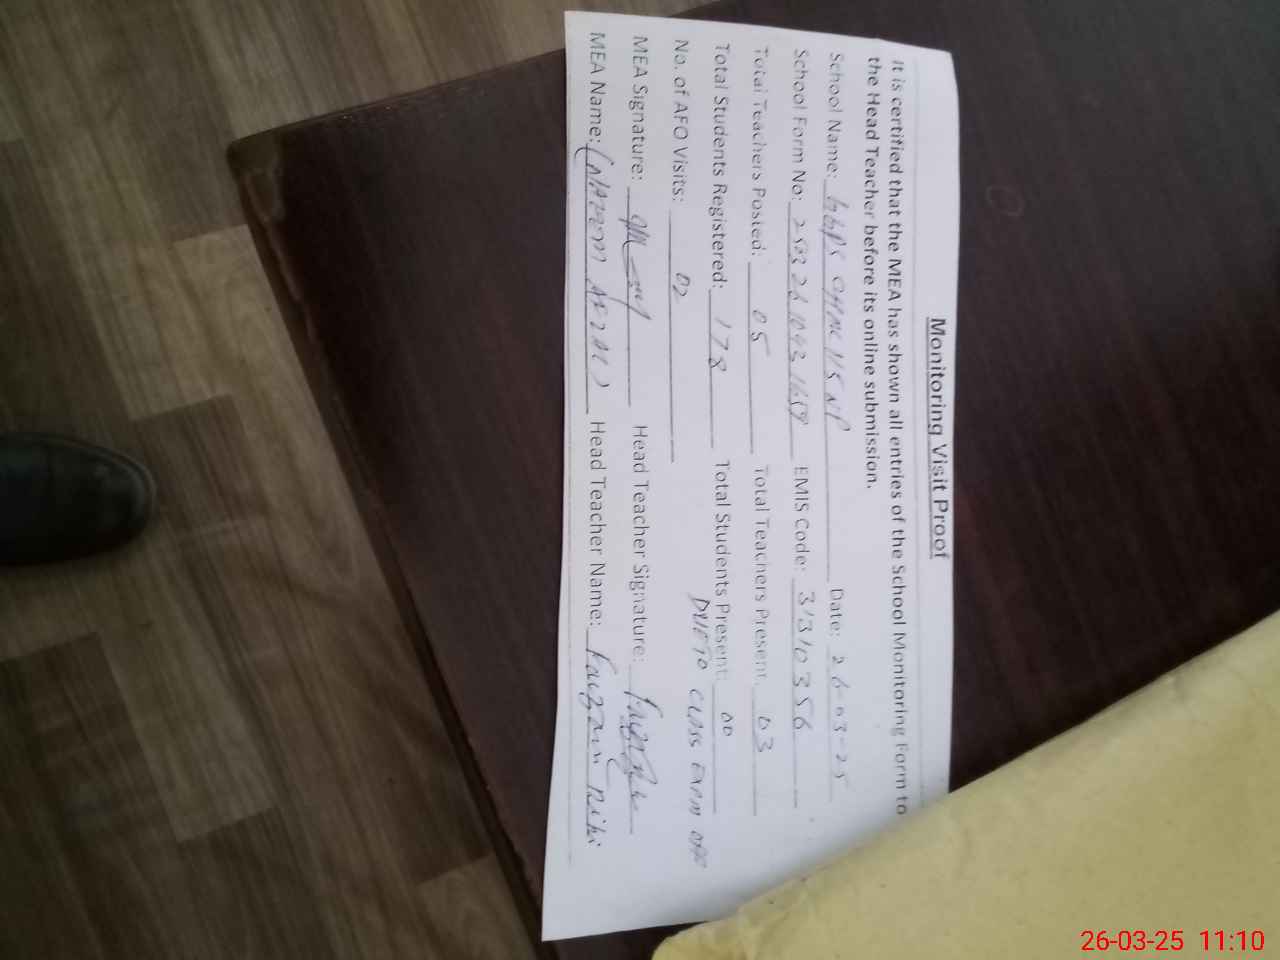 Monitoring Visit Proof
It is certified that the MEA has shown all entries of the School Monitoring Form to
the Head Teacher before its online submission.
School Name: Date: 26-03-25
School Form No: EMIS Code: 31310356
Total Teachers Posted: 05 Total Teachers Present: 03
Total Students Registered: 178 Total Students Present: 00
DUE TO CLASS EXAM OFF
No. of AFO Visits: 02
MEA Signature: Head Teacher Signature:
MEA Name: Head Teacher Name:
26-03-25 11:10